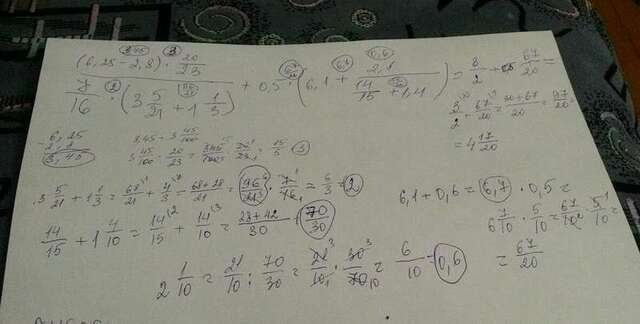 3,45 3
(6,25 - 2,8) · 20/23
7/16 · (3 5/21 + 1 1/3) + 0,5 · (6,1 + 2,1/(14/15 + 1,4)) = 3/2 + 0,5 67/20 =
2 6,7 0,6 70/30
3/2 + 67/20 = 30+67/20 = 97/20 =
= 4 17/20
- 6,25
2,8
3,45
3,45 = 3 45/100
3 45/100 · 20/23 = 345/100 · 20/23 = 15/5 = 3
3 5/21 + 1 1/3 = 68/21 + 4/3 = 68+28/21 = 96/21 · 7/16 = 6/3 = 2
14/15 + 1 4/10 = 14/15 + 14/10 = 28+42/30 = 70/30
2 1/10 = 21/10 : 70/30 = 21/10 · 30/70 = 6/10 = 0,6
6,1 + 0,6 = 6,7 · 0,5 =
6 7/10 · 5/10 = 67/10 · 5/10 =
= 67/20